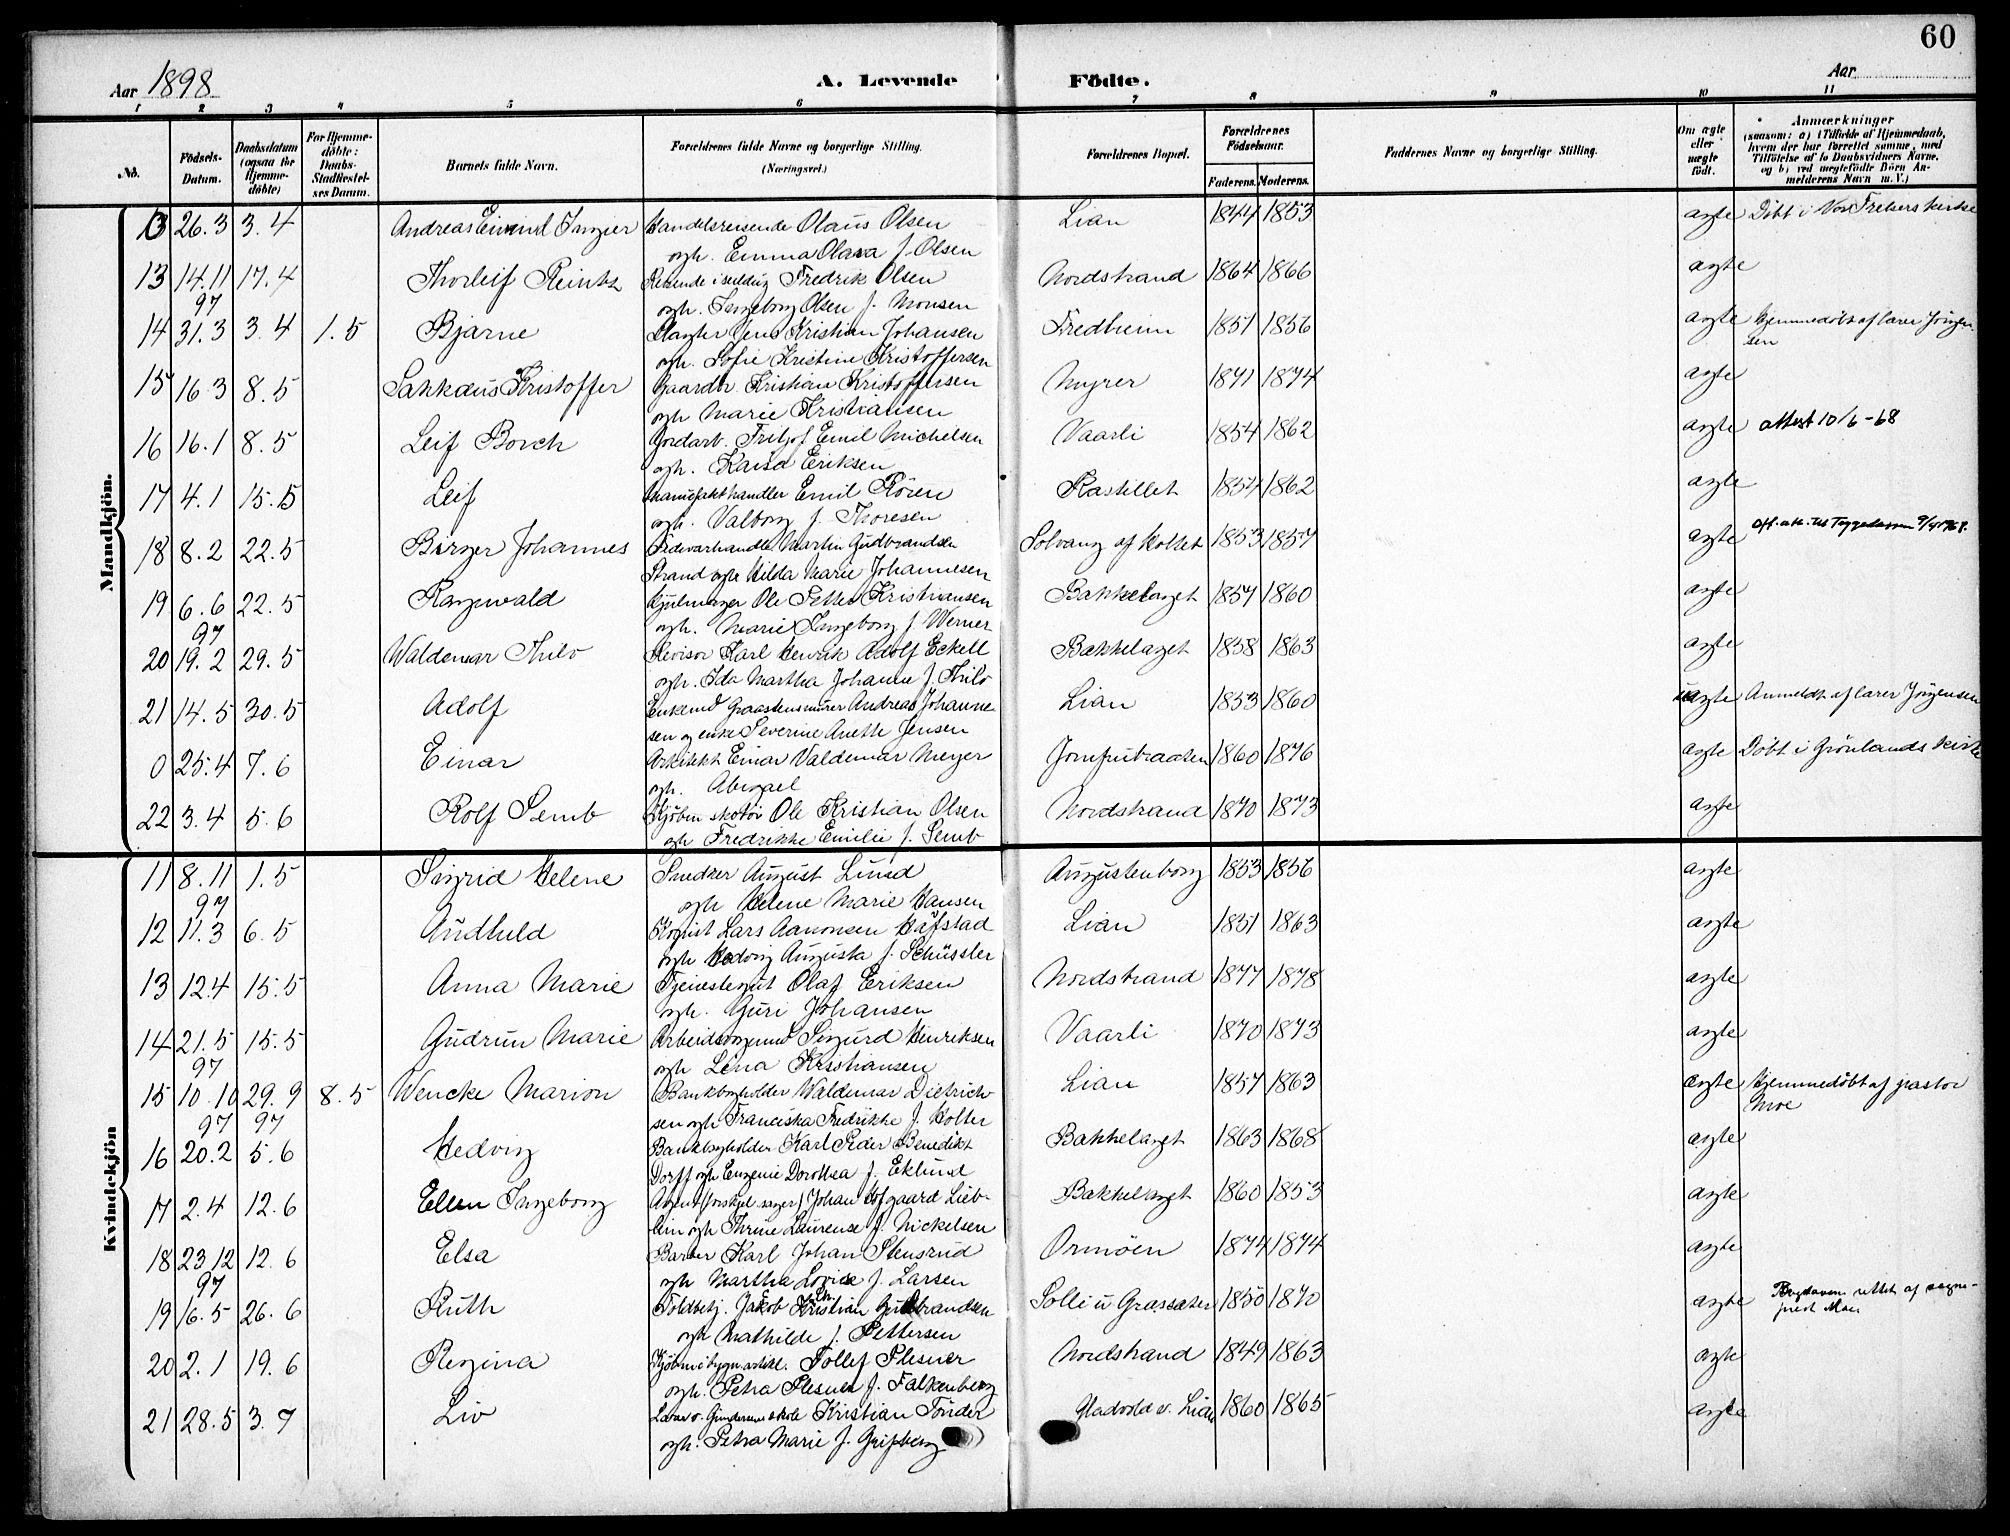 60
Aar 1898
A. Levende Födte.
Aar
1 2 3 4 5 6 7 8 9 10 11
No. Födsels-Datum. Daabsdatum (ogsaa for Hjemme-döbte) For Hjemme-döbte: Daabs-Stadfæstel-ses Datum. Barnets fulde Navn. Forældrenes fulde Navne og borgerlige Stilling. (Næringsvei.) Forældrenes Bopæl. Forældrenes Födselsaar. Faderens. Moderens. Faddernes Navne og borgerlige Stilling. Om ægte eller uægte født. Anmærkninger (saasom: a) i Tilfælde af Hjemmedaab, hvem der har forrettet samme, med Tilföielse af to Daabsvidners Navne. og b) ved uægtefödte Börn An-melderens Navn m. V.)
Mandkjön.
26.3 3.4 Andreas Handelsreisende Olaus Olsen Lian 1844 1853 ægte Döbt i Vor Frelsers kirke
ogh. Emma Olava f. Olsen
13 14.11 17.4 Thorleif Reintz Reisende i Fredrik Olsen Nordstrand 1864 1866 ægte
97 ogh. Ingeborg Olsen f. Monsen
14 31.3 3.4 1.5 Bjarne Slagter Jens Kristian Johansen Fredheim 1851 1856 ægte Hjemmedöbt af lærer Jörgen-
sen
ogh. Sofie Kristine Kristoffersen
15 16.3 8.5 Sakkæus Kristoffer Gaardbr. Kristian Kristoffersen Myrer 1871 1874 ægte
ogh Marie Kristiansen
16 16.1 8.5 Leif Borch Jordarb. Fritjof Emil Michelsen Vaarli 1854 1862 ægte attest 10/6-68
ogh. Kaisa Eriksen
17 4.1 15.5 Leif Manufakthandler Emil Rören Kastellet 1854 1862 ægte
ogh. Valborg f. Thoresen
18 8.2 22.5 Birger Johannes Trævarhandler Martin Gudbrandsen Solvang af Holtet 1853 1857 ægte
Strand ogh Hilda Marie Johannesen
19 6.6 22.5 Ragnvald Hjulmager Ole Petter Kristiansen Bækkelaget 1857 1860 ægte
97 ogh. Marie Ingeborg f. Werner
20 19.2 29.5 Waldemar Thilo Revisor Karl Henrik Adolf Eckell Bækkelaget 1858 1863 ægte
ogh. Ida Martha Johanne f. Thilo
21 14.5 30.5 Adolf Enkemd Graastensmurer Andreas Johanne- Lian 1853 1860 uægte Anmeldt af lærer Jörgensen
sen og enke Severine Anette Jensen
0 25.4 7.6 Einar Arkitekt Einar Valdemar Meyer Jomfrubraaten 1860 1876 ægte Döbt i Grönlands kirke
ogh. Abigael
22 3.4 5.6 Rolf Semb Kjöbm skotöi Ole Kristian Olsen Nordstrand 1870 1873 ægte
ogh Fredrikke Emilie f. Semb
Kvindekjön
11 8.11 1.5 Sigrid Helene Snedker August Lund Augustenborg 1853 1856 ægte
97 ogh Helene Marie Hansen
12 11.3 6.5 Audhild Lars Aanonsen Hafstad Lian 1851 1863 ægte
ogh Hedvig Augusta f. Schüssler
13 12.4 15.5 Anna Marie Tjenestegut Olaf Eriksen Nordstrand 1877 1878 ægte
ogh. Guri Johansen
14 21.5 15.5 Gudrun Marie Arbeidsgmand Sigurd Henriksen Vaarli 1870 1873 ægte
97 ogh Lena Kristiansen
15 10.10 29.9 8.5 Wencke Marion Bankbogholder Waldemar Dietrich- Lian 1857 1863 ægte Hjemmedöbt af pastor
97 97 sen ogh Franciska Fredrikke f. Holter Moe
16 20.2 5.6 Hedvig Bankbogholder Karl Peder Benedikt Bækkelaget 1863 1868 ægte
Dorff ogh Eugenie Dorothea f. Eklund
17 2.4 12.6 Ellen Ingeborg Agent (forskjel. sager) Johan Hofgaard Lieb- Bækkelaget 1860 1853 ægte
lein ogh Thrine Laurense f. Nickelsen
18 23.12 12.6 Elsa Barber Karl Johan Stensrud Ormöen 1874 1874 ægte
97 ogh Martha Lovise f. Larsen
19 16.5 26.6 Ruth Toldbetj. Jakob Kristian Gulbrandsen Solli u Græsaker 1850 1870 ægte rettet af sogne-
prest
ogh Mathilde f. Pettersen
20 2.1 19.6 Regina Kjöbm i bygn.artikl. Tollef Plesner Nordstrand 1849 1863 ægte
ogh. Petra Plesner f. Falkenberg
21 28.5 3.7 Liv Lærer v. skole Kristian Tönder Gladvold v. Lian 1860 1865 ægte
ogh. Petra Marie f. Gripberg